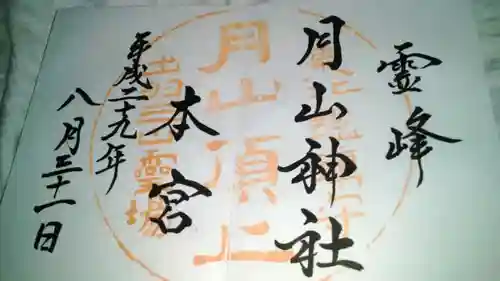 霊峰
月山神社
本宮
平成二十九年
八月三十一日
月山頂上